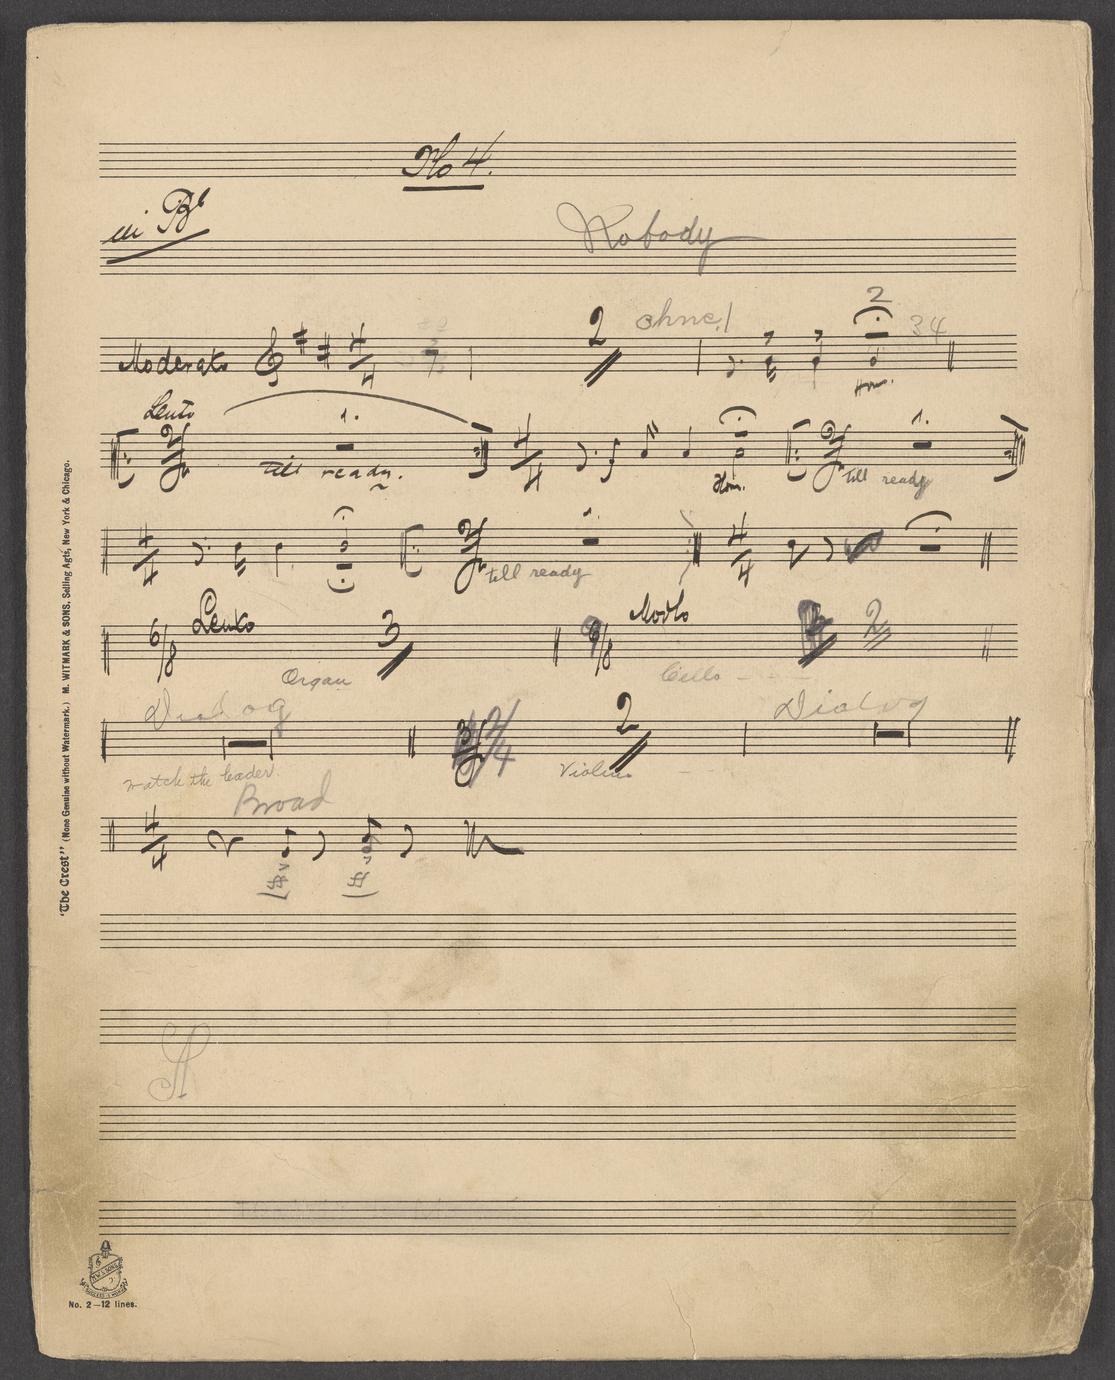 No 4.
in B♭
Nobody
2 ohne! 2 34
Moderato 4/4
Horn.
Lento 1.
till ready. 4/4 Horn. till ready 1.
4/4 till ready 4/4
6/8 Lento 3 6/8 Modto 2
Organ Cello
Dialog 2/4 2 Dialog
watch the leader. Violin
Broad
4/4
ff ff
"The Crest" (None Genuine without Watermark.) M. WITMARK & SONS, Selling Agts, New York & Chicago.
No. 2—12 lines.